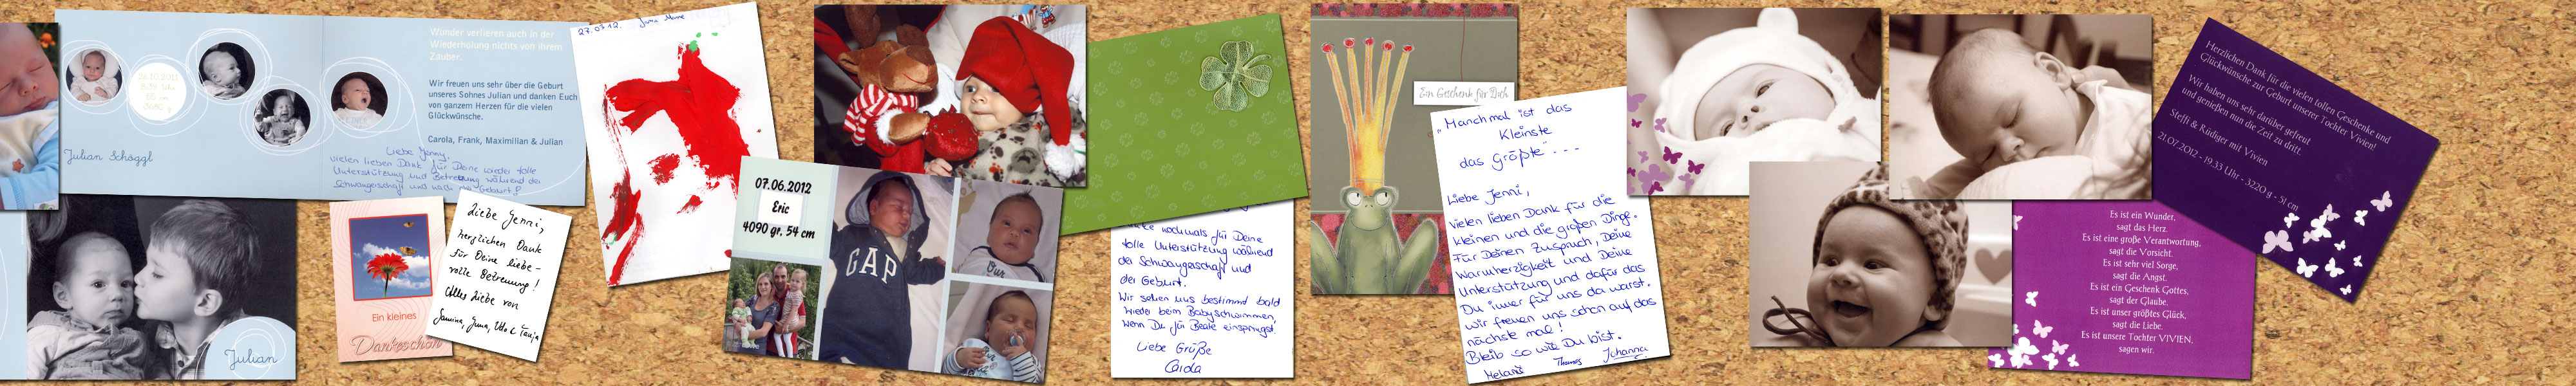 26.10.2011
Wunder verlieren auch in der
Wiederholung nichts von ihrem
Zauber.
Wir freuen uns sehr über die Geburt
unseres Sohnes Julian und danken Euch
von ganzem Herzen für die vielen
Glückwünsche.
Carola, Frank, Maximilian & Julian
Julian Schöggl
Liebe Jenny,
vielen lieben Dank für Deine wieder tolle
Unterstützung und Betreuung während der
Schwangerschaft und nach der Geburt!
Julian
Ein kleines
Dankeschön
Liebe Jenni,
herzlichen Dank
für Deine liebe-
volle Betreuung!
Alles Liebe von
27.03.12.
07.06.2012
Eric
4090 gr. 54 cm
GAP
nochmals für Deine
tolle Unterstützung während
der Schwangerschaft und
der Geburt.
Wir sehen uns bestimmt bald
wieder beim Babyschwimmen,
wenn Du für Beate einspringst.
Liebe Grüße
Ein Geschenk für Dich
"Manchmal ist das
Kleinste
das größte" ...
Liebe Jenni,
vielen lieben Dank für die
kleinen und die großen Dinge.
Für Deinen Zuspruch, Deine
Warmherzigkeit und Deine
Unterstützung und dafür das
Du immer für uns da warst.
Wir freuen uns schon auf das
nächste mal!
Bleib so wie Du bist.
Thomas Johanna
Melanie
Herzlichen Dank für die vielen tollen Geschenke und
Glückwünsche zur Geburt unserer Tochter Vivien!
Wir haben uns sehr darüber gefreut
und genießen nun die Zeit zu dritt.
Steffi & Rüdiger mit Vivien
21.07.2012 - 19.33 Uhr - 3220 g - 51 cm
Es ist ein Wunder,
sagt das Herz.
Es ist eine große Verantwortung,
sagt die Vorsicht.
Es ist sehr viel Sorge,
sagt die Angst.
Es ist ein Geschenk Gottes,
sagt der Glaube.
Es ist unser größtes Glück,
sagt die Liebe.
Es ist unsere Tochter VIVIEN,
sagen wir.